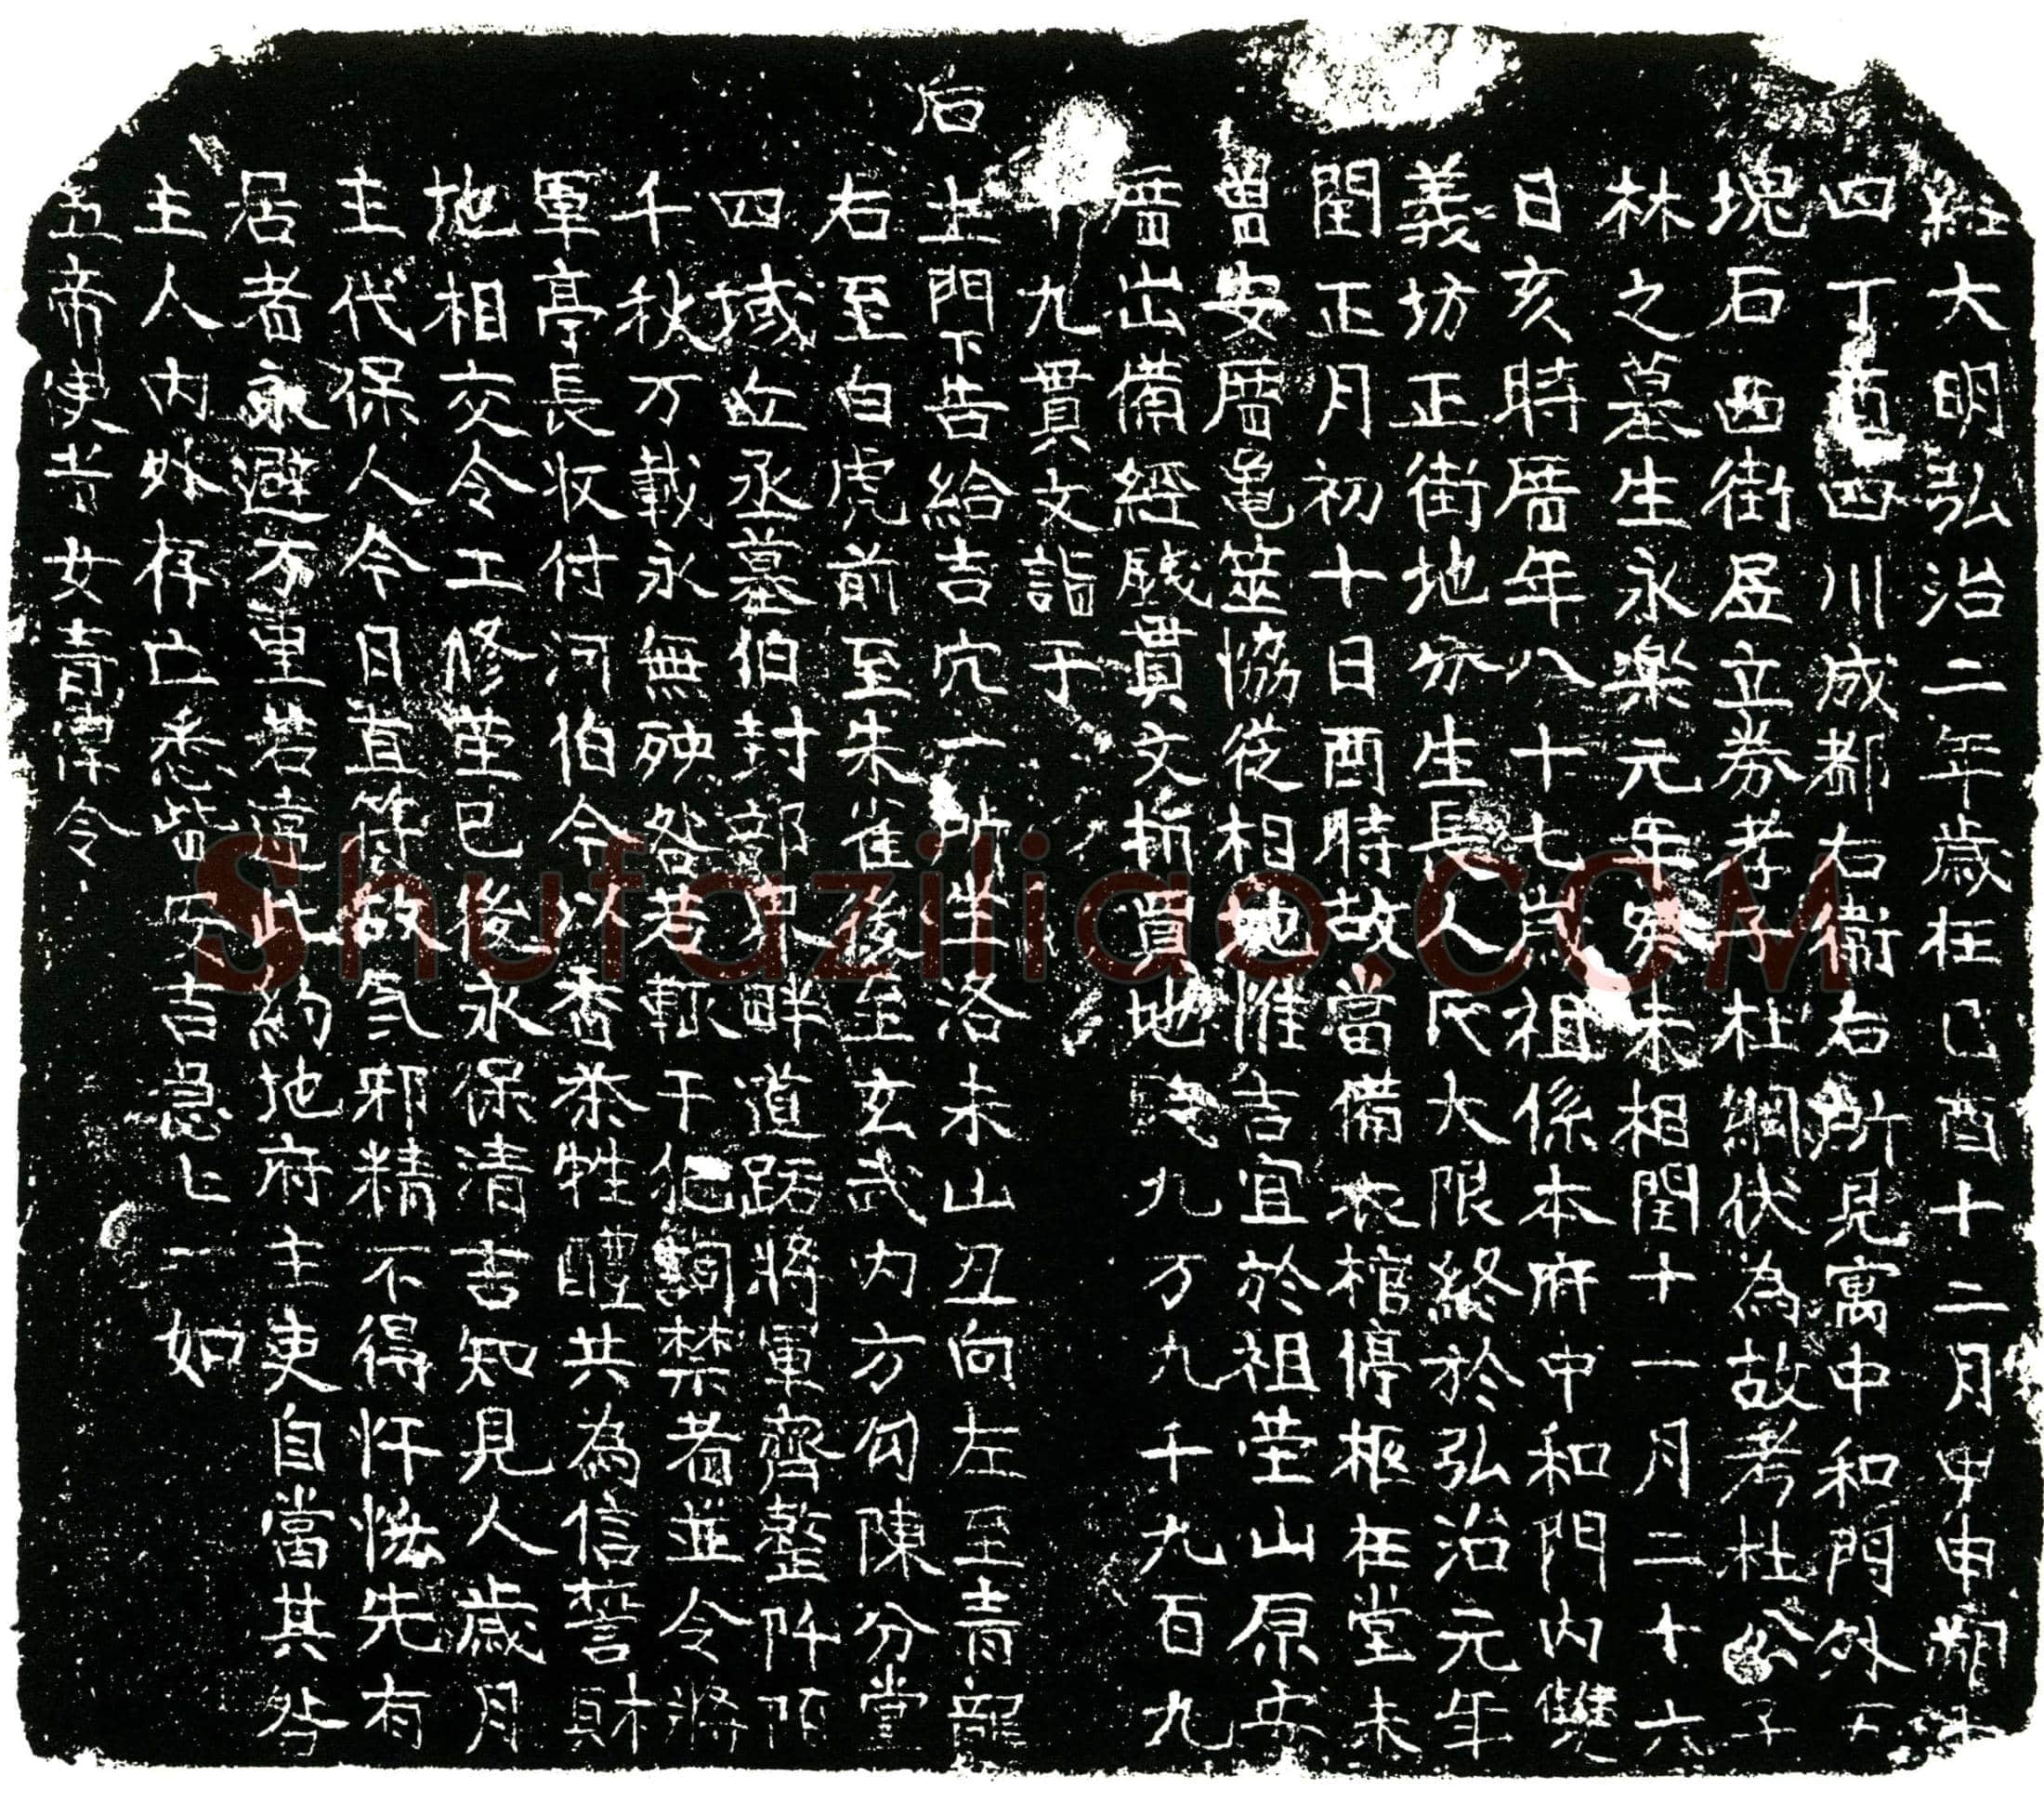 維大明弘治二年歲在己酉十二月甲申朔
四丁酉四川成都右衞右所見寓中和門外
塊石西街居立券孝子杜綱伏為故考杜公子
林之墓生永樂元年癸未相閏十一月二十六
日亥時曆年八十七歲祖係本府中和門内雙
義坊正街地分生長人氏大限終於弘治元年
閏正月初十日酉時故當備衣棺停柩在堂未
曽安厝龜筮協從相地惟吉宜於祖塋山原安
厝出備經賤貫文折買地 九万九千九百九
十九貫文詣于
后
土門下告給吉穴一所坐洛未山丑向左至青龍
右至白虎前至朱雀後至玄武内方勾陳分堂
四域丘丞墓伯封部界畔道路將軍齊整阡陌
千秋万載永無殃咎若輒干犯訶禁者並令將
軍亭長収付河伯令以香茶牲醴共為信誓財
地相交令工修塋已後永保清吉知見人歲月
主代保人今日直符故氣邪精不得忓恡先有
居者永避万里若違此約地府主吏自當其咎
主人内外存亡悉皆安吉急匕一如
五帝使者女青律令
Shufaziliao.COM